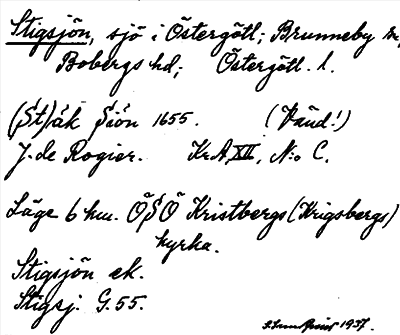 Stigsjön, sjö i Östergötl; Brunneby sn,
Bobergs hd; Östergötl. l.
(St)åk Siön 1655. (Vänd!)
J. de Rogier. Kr.A. XII, N:o C.
Läge 6 km. ÖSÖ Kristbergs (Krigsbergs)
kyrka.
Stigsjön ek.
Stigsj. G. 55.
1937.